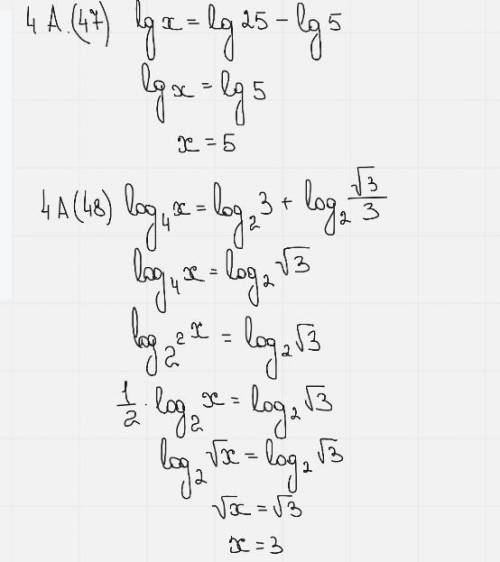 4 A.(47) lg x = lg 25 - lg 5
lg x = lg 5
x = 5
4A(48) log₄x = log₂3 + log₂ √3/3
log₄x = log₂√3
log₂²x = log₂√3
1/2 · log₂x = log₂√3
log₂√x = log₂√3
√x = √3
x = 3